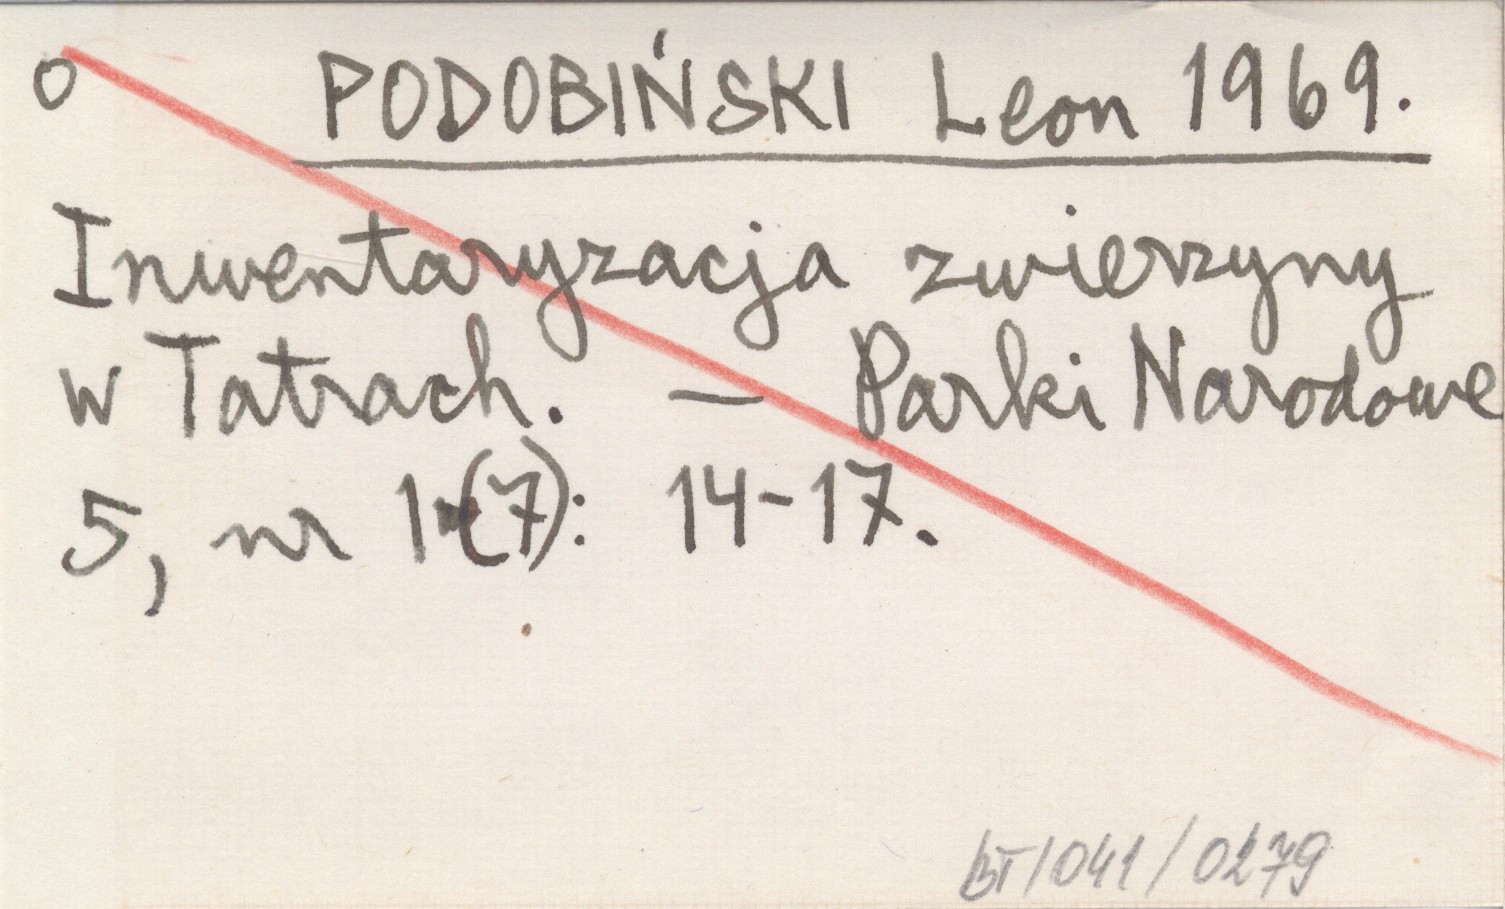 o PODOBIŃSKI Leon 1969.
Inwentaryzacja zwierzyny
w Tatrach. — Parki Narodowe
5, nr 1(7): 14-17.
BT/041/0279